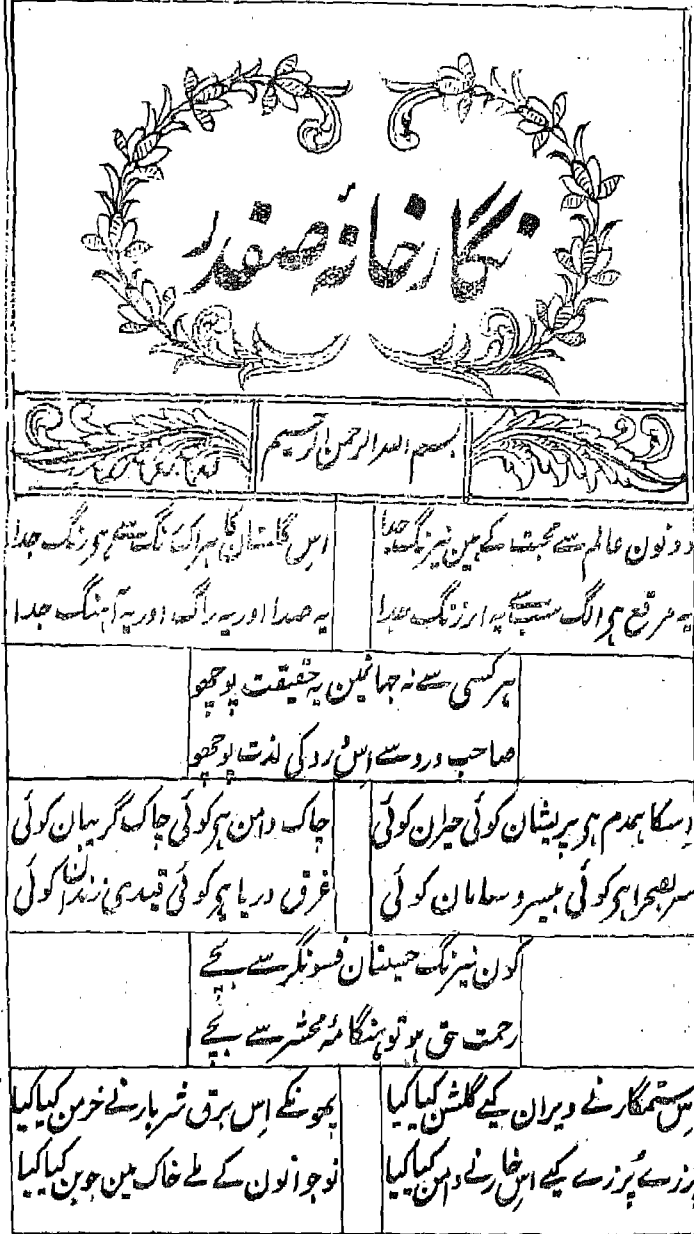 نگارخانۂ صفدر
بسم اللہ الرحمن الرحیم
دونون عالم سے محبت کے ہین نیرنگ جدا اس گلستان کا ہر اک رنگ سے ہو رنگ جدا
یہ مرقع ہو الگ سب سے یہ ارژنگ جدا یہ صدا اور یہ راگ اور یہ آہنگ جدا
ہر کسی سے نہ جہانمین یہ حقیقت پوچھو
صاحب درد سے اس درد کی لذت پوچھو
اسکا ہمدم ہو پریشان کوئی حیران کوئی چاک دامن ہو کوئی چاک گریبان کوئی
سر بصحرا ہو کوئی بیسر و سامان کوئی غرق دریا ہو کوئی قیدی زندان کوئی
کون نیرنگ حسینان فسونگر سے بچے
رحمت حق ہو تو ہنگامۂ محشر سے بچے
اس ستمگار نے ویران کیے گلشن کیا کیا پھونکے اس برق شرربار نے خرمن کیا کیا
پرزے پُرزے کیے اس خار نے دامن کیا کیا نوجوانون کے ملے خاک مین جوبن کیا کیا